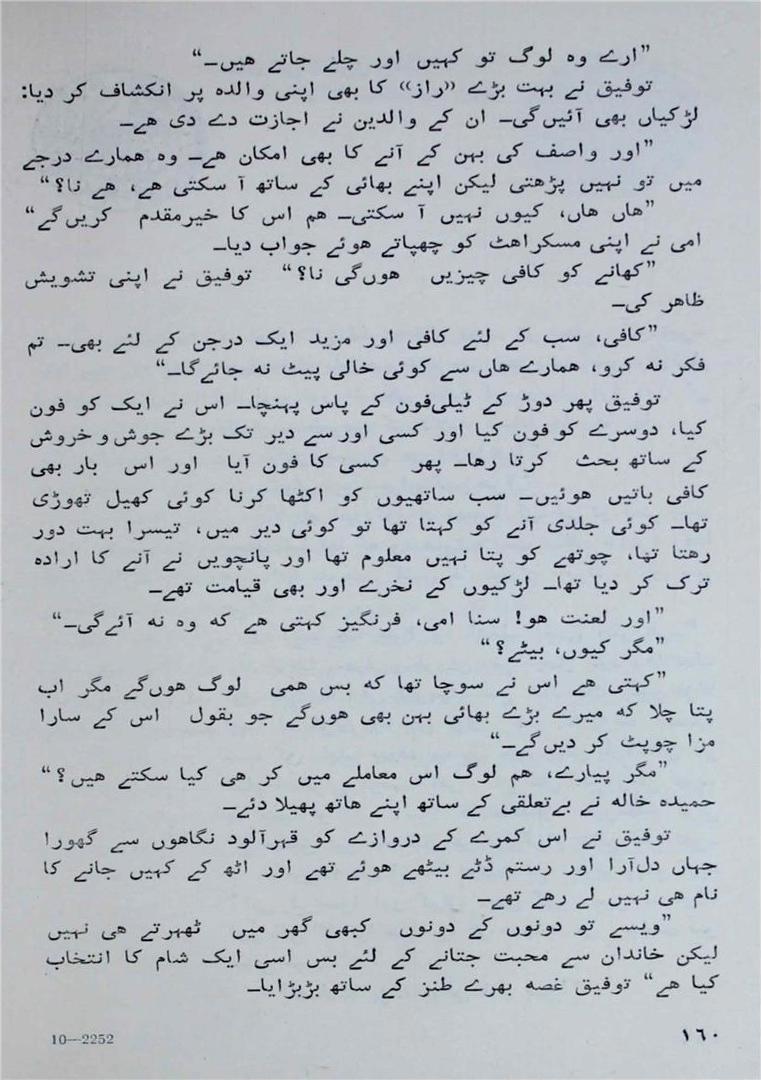 ”ارے وہ لوگ تو کہیں اور چلے جاتے ہیں۔“
توفیق نے بہت بڑے «راز» کا بھی اپنی والدہ پر انکشاف کر دیا:
لڑکیاں بھی آئیں‌گی۔ ان کے والدین نے اجازت دے دی ہے۔
”اور واصف کی بہن کے آنے کا بھی امکان ہے۔ وہ ہمارے درجے
میں تو نہیں پڑھتی لیکن اپنے بھائی کے ساتھ آ سکتی ہے، ہے نا؟“
”ہاں ہاں، کیوں نہیں آ سکتی۔ ہم اس کا خیرمقدم کریں‌گے“
امی نے اپنی مسکراہٹ کو چھپاتے ہوئے جواب دیا۔
”کھانے کو کافی چیزیں ہوں‌گی نا؟“ توفیق نے اپنی تشویش
ظاہر کی۔
”کافی، سب کے لئے کافی اور مزید ایک درجن کے لئے بھی۔ تم
فکر نہ کرو، ہمارے ہاں سے کوئی خالی پیٹ نہ جائے‌گا۔“
توفیق پھر دوڑ کے ٹیلی‌فون کے پاس پہنچا۔ اس نے ایک کو فون
کیا، دوسرے کو فون کیا اور کسی اور سے دیر تک بڑے جوش و خروش
کے ساتھ بحث کرتا رہا۔ پھر کسی کا فون آیا اور اس بار بھی
کافی باتیں ہوئیں۔ سب ساتھیوں کو اکٹھا کرنا کوئی کھیل تھوڑی
تھا۔ کوئی جلدی آنے کو کہتا تھا تو کوئی دیر میں، تیسرا بہت دور
رہتا تھا، چوتھے کو پتا نہیں معلوم تھا اور پانچویں نے آنے کا ارادہ
ترک کر دیا تھا۔ لڑکیوں کے نخرے اور بھی قیامت تھے۔
”اور لعنت ہو! سنا امی، فرنگیز کہتی ہے کہ وہ نہ آئے‌گی۔“
”مگر کیوں، بیٹے؟“
”کہتی ہے اس نے سوچا تھا کہ بس ہمی لوگ ہوں‌گے مگر اب
پتا چلا کہ میرے بڑے بھائی بہن بھی ہوں‌گے جو بقول اس کے سارا
مزا چوپٹ کر دیں‌گے۔“
”مگر پیارے، ہم لوگ اس معاملے میں کر ہی کیا سکتے ہیں؟“
حمیدہ خالہ نے بے‌تعلقی کے ساتھ اپنے ہاتھ پھیلا دئے۔
توفیق نے اس کمرے کے دروازے کو قہرآلود نگاہوں سے گھورا
جہاں دل‌آرا اور رستم ڈٹے بیٹھے ہوئے تھے اور اٹھ کے کہیں جانے کا
نام ہی نہیں لے رہے تھے۔
”ویسے تو دونوں کے دونوں کبھی گھر میں ٹھہرتے ہی نہیں
لیکن خاندان سے محبت جتانے کے لئے بس اسی ایک شام کا انتخاب
کیا ہے“ توفیق غصہ بھرے طنز کے ساتھ بڑبڑایا۔
۱٦۰
10—2252